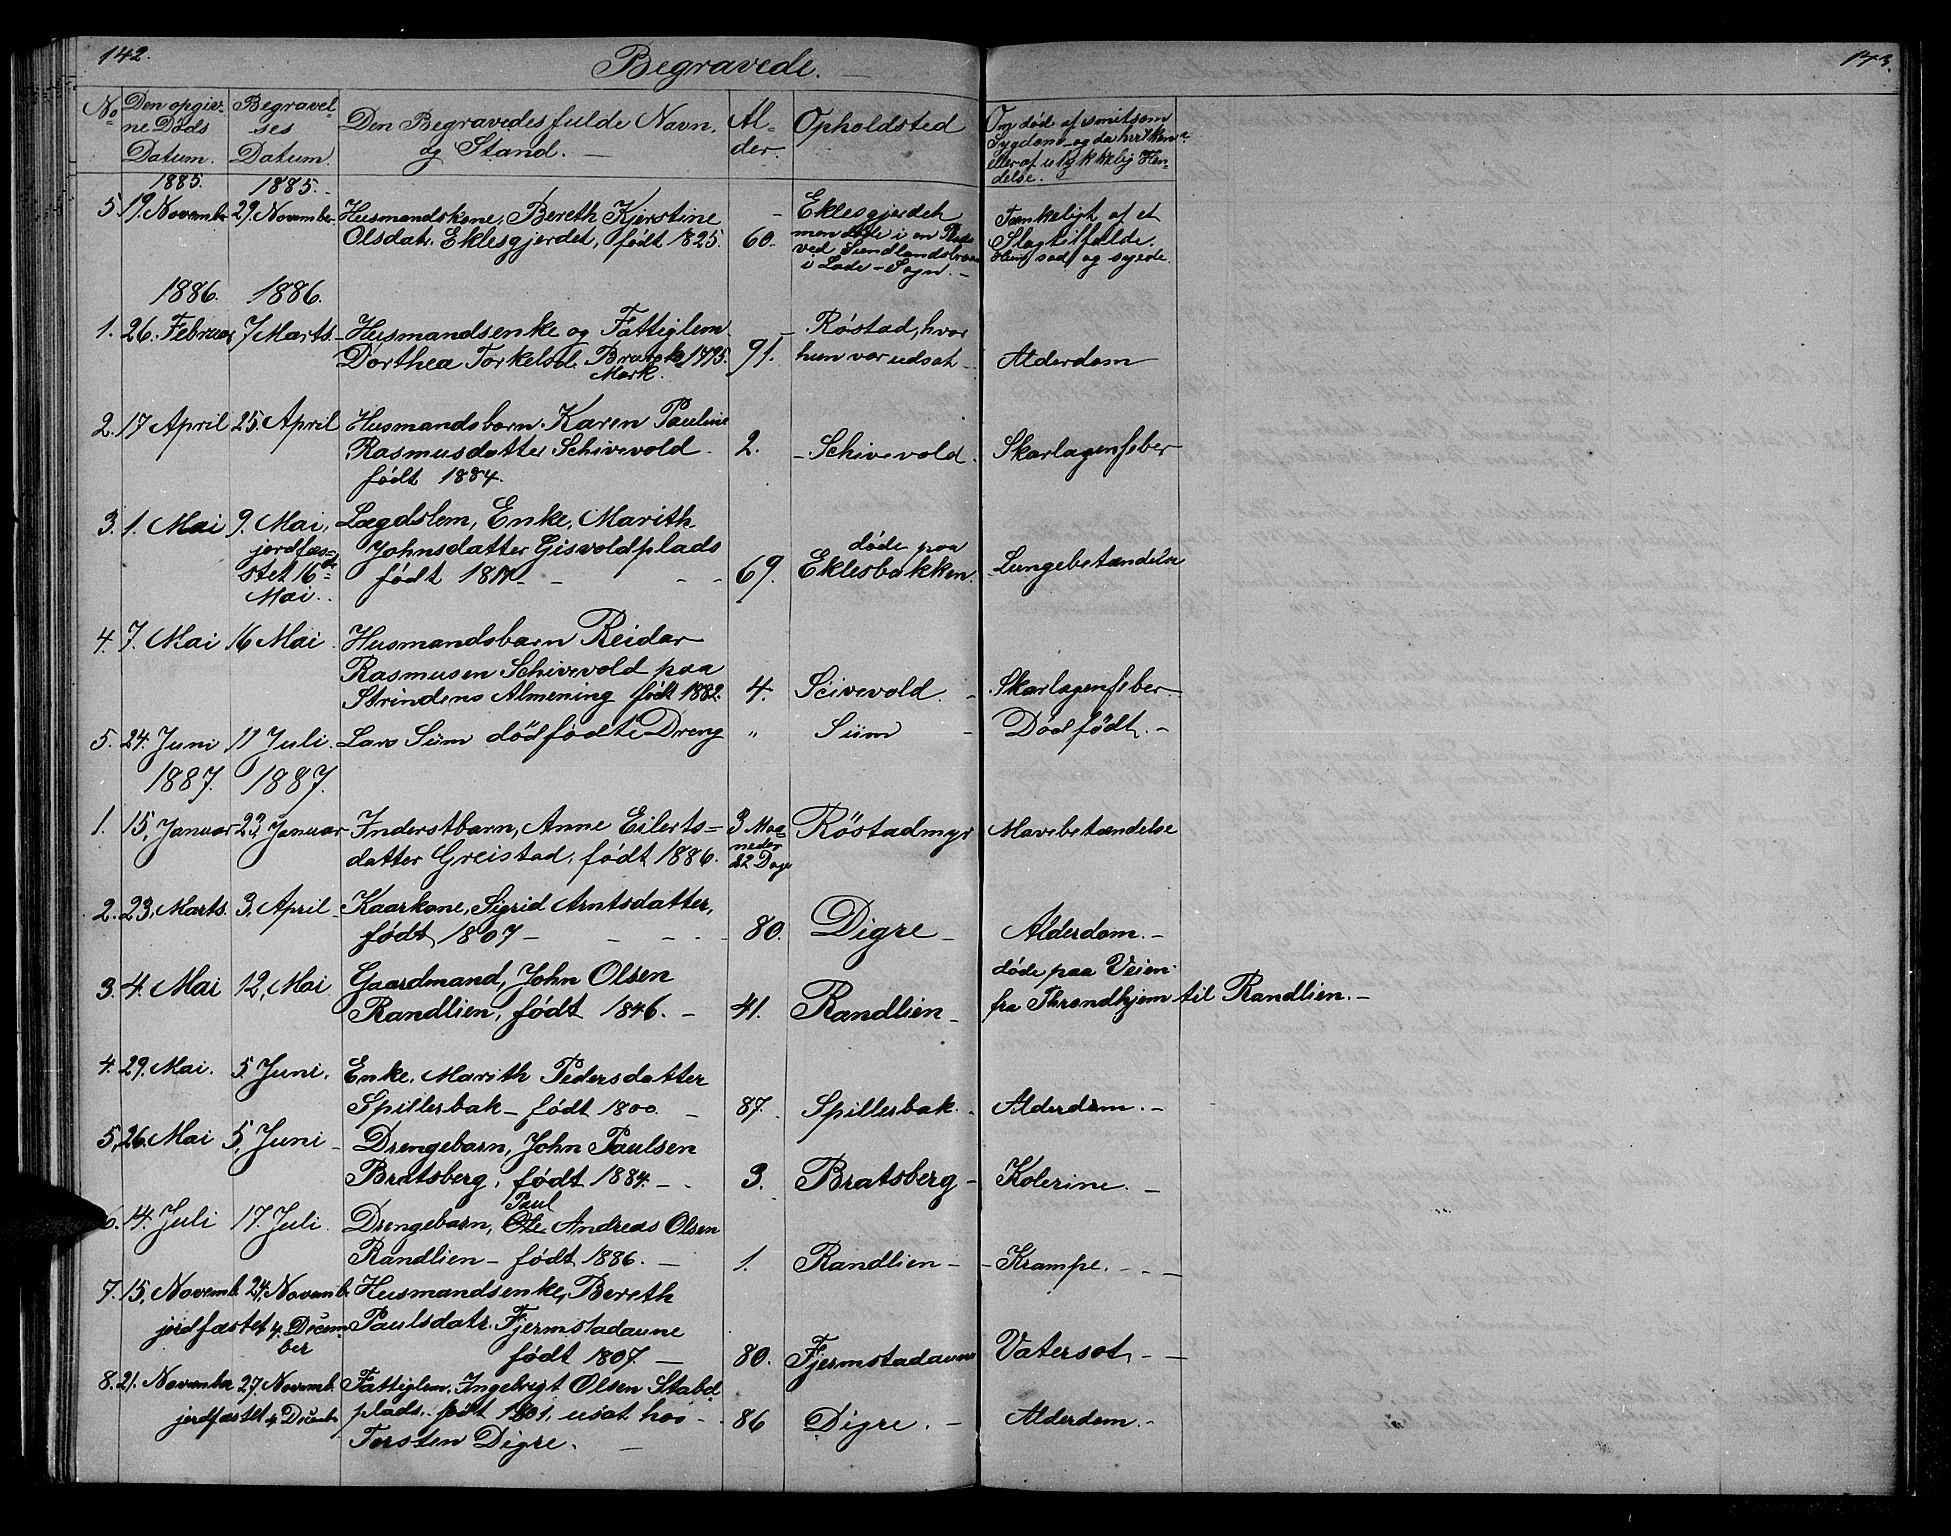 142.
Begravede. —
143.
No
Den opgiv-
ne Døds
Datum.
Begravel-
ses
Datum.
Den Begravedes fulde Navn,
og Stand. —
Al-
der.
Opholdsted
Om død af smitsom
Sygdom og da hvilken?
eller af ulykkelig Hen-
delse.
1885. 1885.
5. 19. Novemb. 29. November Husmandskone, Bereth Kjerstine
Olsdatr. Eklesgjerdet, født 1825. 60.
Eklesgjerdet
men døde i en Plads
ved Sundlandsbroen
i Lade-Sogn. —
Tænkeligt af et
Slagtilfælde.
Hun sad og syede.
1886. 1886.
1. 26. Februar 7 Marts. Husmandsenke og Fattiglem
Dorthea Torkelsd. 1795.
Mark.
91.
Røstad, hvor
hun var udsat
Alderdom
2. 17 April 25. April Husmandsbarn Karen Pauline
Rasmusdatter Schivevold
født 1884.
2. Schivevold. Skarlagenfeber
3. 1. Mai 9. Mai, Lægdslem, Enke, Marith
jordfæs-
stet 16de
Mai.
Johnsdatter Gisvoldplads
født 1817
69.
døde paa
Eklesbakken. Lungebetændelse
4. 7. Mai 16 Mai Husmandsbarn Reidar
Rasmusen Schivevold paa
Strindens Almening født 1882.
4. Scivevold. Skarlagenfeber
5. 24. Juni 11 Juli. Lars Siim dødfødte Dreng " Siim Dødfødt. —
1887. 1887.
1. 15, Januar 23, Januar Inderstbarn, Anne Eilerts=
datter Greistad, født 1886.
3 Maa-
neder
22 Dage
Røstadmyr Mavebetændelse
2. 23, Marts. 3, April Kaarkone, Sigrid Arntsdatter,
født 1807 — 80. Digre — Alderdom. —
3. 4. Mai 12, Mai Gaardmand, John Olsen
Randlien, født 1846. — 41. Randlien —
døde paa Veien
fra Throndhjem til Randlien. —
4. 29. Mai. 5. Juni. Enke, Marith Pedersdatter
Spillerbak — født 1800. — 87. Spillerbak. Alderdom. —
5, 26. Mai 5, Juni — Drengebarn, John Paulsen
Bratsberg, født 1884. — 3. Bratsberg — Kolerine. —
6. 14. Juli 17. Juli. Drengebarn, Ole Andreas Olsen
Paul
Randlien — født 1886. — 1. Randlien — Krampe. —
7. 15, Novemb. 24, Novemb. Husmandsenke, Bereth
jordfæstet 4. Decem-
ber
Paulsdatr. Fjermstadaune
født 1807. — 80. Fjermstadaune Vatersot. —
8. 21. November 27. Novemb. Fattiglem, Ingebrigt Olsen Stabel
jordfæstet 4. Decemb. plads. født 1801, usat hos
Torsten Digre. — 86 Digre. — Alderdom. —